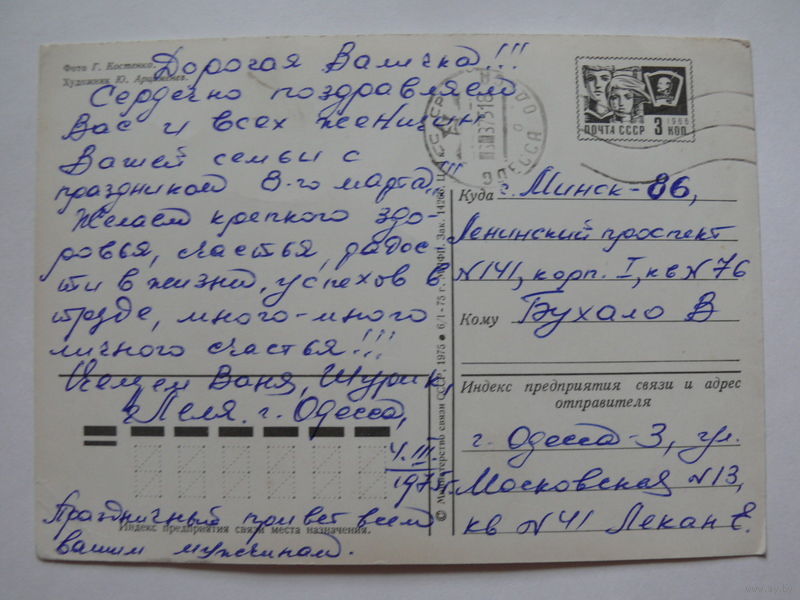 Фото Г. Костенко.
Художник Ю.
Дорогая Валичка!!!
Сердечно поздравляем
Вас и всех женщин
Вашей семьи с
праздником 8-го марта!!!
Желаем крепкого здо-
ровья, счастья, радос-
ти в жизни, успехов в
труде, много-много
личного счастья!!!
Целуем Ваня, Шурик,
Леля. г. Одесса,
4. III.
1975г.
Праздничный привет всем
вашим мужчинам.
Индекс предприятия связи места назначения.
© Министерство связи СССР, 1975 ● 6/I-75 г. МПФГ. Зак.
ОДЕССА
ПОЧТА СССР 3 КОП
1966
Куда г. Минск-86,
Ленинский проспект
N141, корп. I, кв N76
Кому Бухало В
Индекс предприятия связи и адрес
отправителя
г. Одесса-3, ул.
Московская N13,
кв N41 Лекан Е.
www.ay.by